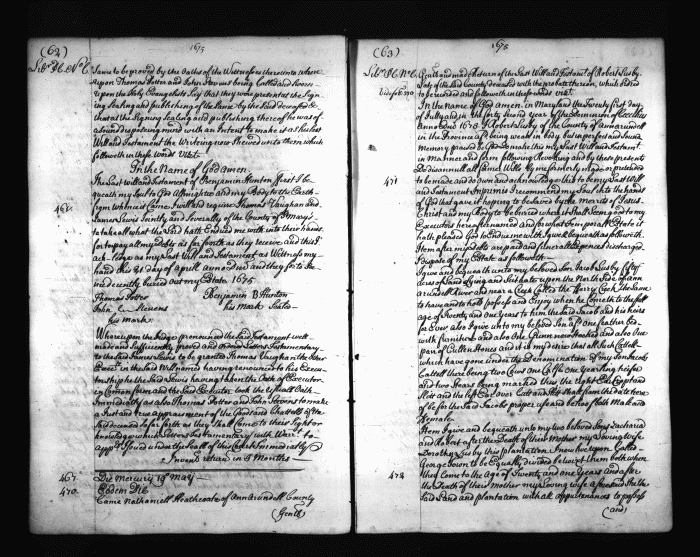 (62)
1675
Liber H. C. No. C.
Same to be proved by the Oaths of the Wittnesses thereunto where
upon Thomas Potter and John Stevens being Called and Sworn
upon the holy Evangelists Say that they were present at the Sign
ing Sealing and publishing of the Same by the Said deceased &
that at the Signing Sealing and publishing thereof he was of
a Sound disposing mind with an Intent to make it as his last
Will and Testament the Writeing now Shewed unto them which
followeth in these Words Vizt.
In the Name of God amen.
The Last Will and Testament of Benjamin Hunton ffirst I be
queath my Soul to God Allmighty and my Body to the Earth
from which it Came I will and require Thomas Vaughan and
468.
James Lewis Jointly and Severally of the County of St Marys
to take all what the Said hath Endued me with into their hands
for to pay all my Debts as far forth as they receive and this I
ack-ledge as my Last Will and Testament as Witness my
hand this 21 day of april anno dni and they for to See
me decently buried out my Estate 1675
Thomas Potter
Benjamin B Hunton
John Stevens
his mark Seale
his mark
Whereupon the Judge pronounced the Said Testament well
made and Sufficiently proved and ordered Letters Testamentary
to the Said James Lewis to be granted Thomas Vaughan the other
Execr. in the Will named having renounced to his Execu
torship he the Said Lewis having taken the Oath of Executor
in Common form and the Said Executor took the Usuall Oath
Immediatly as also Thomas Potter and John Stevens to make
a Just and true appraisement of the Goods and Chattells of the
Said deceased so far forth as they Shall come to their Sight or
knowledge which Letters Testamentary with Warrt. to
apprs. Issued under the Seall of this Court Immediatly
Invenry return in 3 Months
469.
Die Mercury 19 May
470.
Eodem Die
Came Nathaniell Heathcote of Ann arundell County
(Gentl)
(63)
1675
Liber H. C. No. C.
Gentl. and made return of the Last Will and Testamt. of Robert Lusby
Late of the Said County deceased with the probate thereon, which Ordered
to be recorded and followeth in these words vizt.
In the Name of God amen. in Maryland the Twenty first Day
of July and in the forty Second year of the Dominion of Cecilius
Anno Domi 1673 I Robert Lusby of the County of ann arundell
in the Province afd. being weak in body but in perfect and Sound
Memory praised be God do make this my Last Will and Testamt.
in Manner and form following Revoking and by these present
Do disannull all former Wills by me formerly made or pretended
471
to be made and do own and acknowledge this to be my Last Will
and Testament Imprimis I recommend my Soul into the hands
of God that gave it hoping to be Saved by the merits of Jesus
Christ and my Body to be buried where it Shall Seem good to my
Executors hereafter named and for what Temporall Estate it
hath pleased God to Endue me with I give & bequeath as followeth
Item after my Debts are paid and funerall Expences discharged
I dispose of my Estate as followeth
I give and bequeath unto my beloved Son Jacob Lusby fifty
Acres of Land lying and Scituate upon the North Side of ann
arundell River and near a Creek Called the fferry Creek The Same
to have and to hold possess and Enjoy when he Cometh to the full
age of Twenty and one Years to him the Said Jacob and his heirs
for Ever also I give unto my beloved Son afd. one feather bed
with furniture and also one Gunn never Stocked and also One
pair of Cullen Stones and it is my desire that all Such Cattle
which have gone under the Denomination of my Son Jacobs
Cattell there being two Cows One Calfe One yearling heifer
and two Steers being marked thus the right Ear Cropt and
Slitt and the left Ear over Cutt and Slitt Shall from the date here
of be for the Said Jacobs proper use and behoof both Male and
ffemale
Item I give and bequeath unto my two beloved Sons Zacharia
and Robert after the Death of their Mother my Loving wife
Dorothy Lusby this plantation I now live upon Called
George Town to be Equally divided betwixt them both when
472
they Come to the Age of Twenty and one Years and after
the Death of their Mother my Loving wife aforesaid the the
Said Land and plantation with all appurtenances to possess
(and)